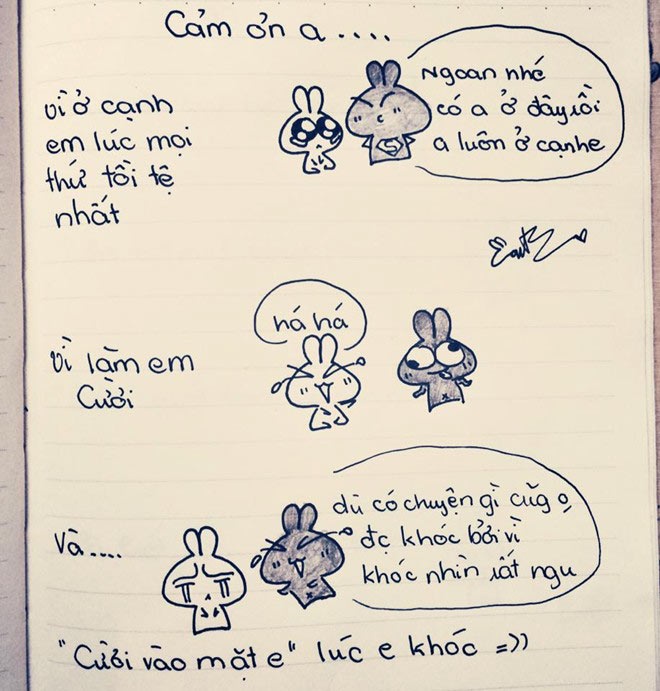 Cảm ơn a ....
vì ở cạnh
em lúc mọi
thứ tồi tệ
nhất
Ngoan nhé
có a ở đây rồi
a luôn ở cạnh e
há há
vì làm em
cười
Và....
dù có chuyện gì cũg o
đc khóc bởi vì
khóc nhìn rất ngu
"Cười vào mặt e" lúc e khóc =))